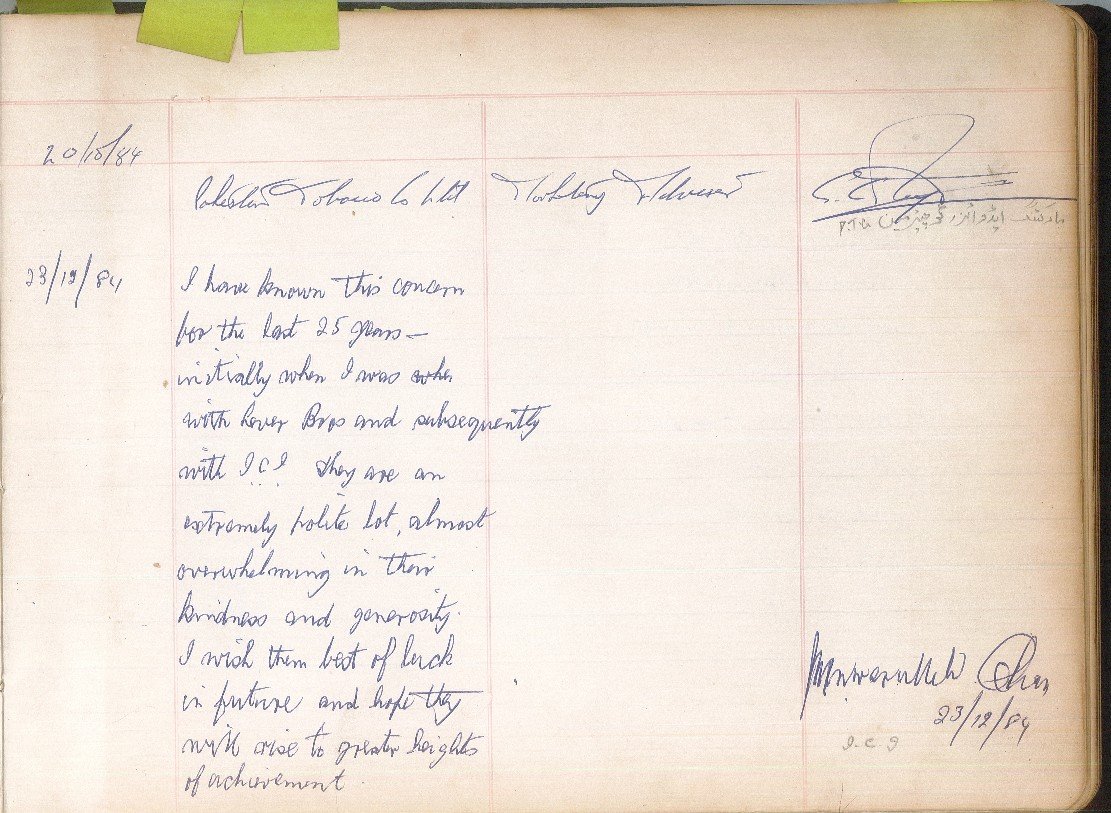 20/10/84
Pakistan Tobacco Co Ltd Marketing Adviser
مارکیٹنگ ایڈوائزر ٹو چیئرمین P.T.C
23/12/84
I have known this concern
for the last 25 years –
initially when I was whe
with Lever Bros and subsequently
with I.C.I They are an
extremely polite lot, almost
overwhelming in their
kindness and generosity.
I wish them best of luck
in future and hope they
will rise to greater heights
of achievement.
Khan
23/12/84
I.C.I